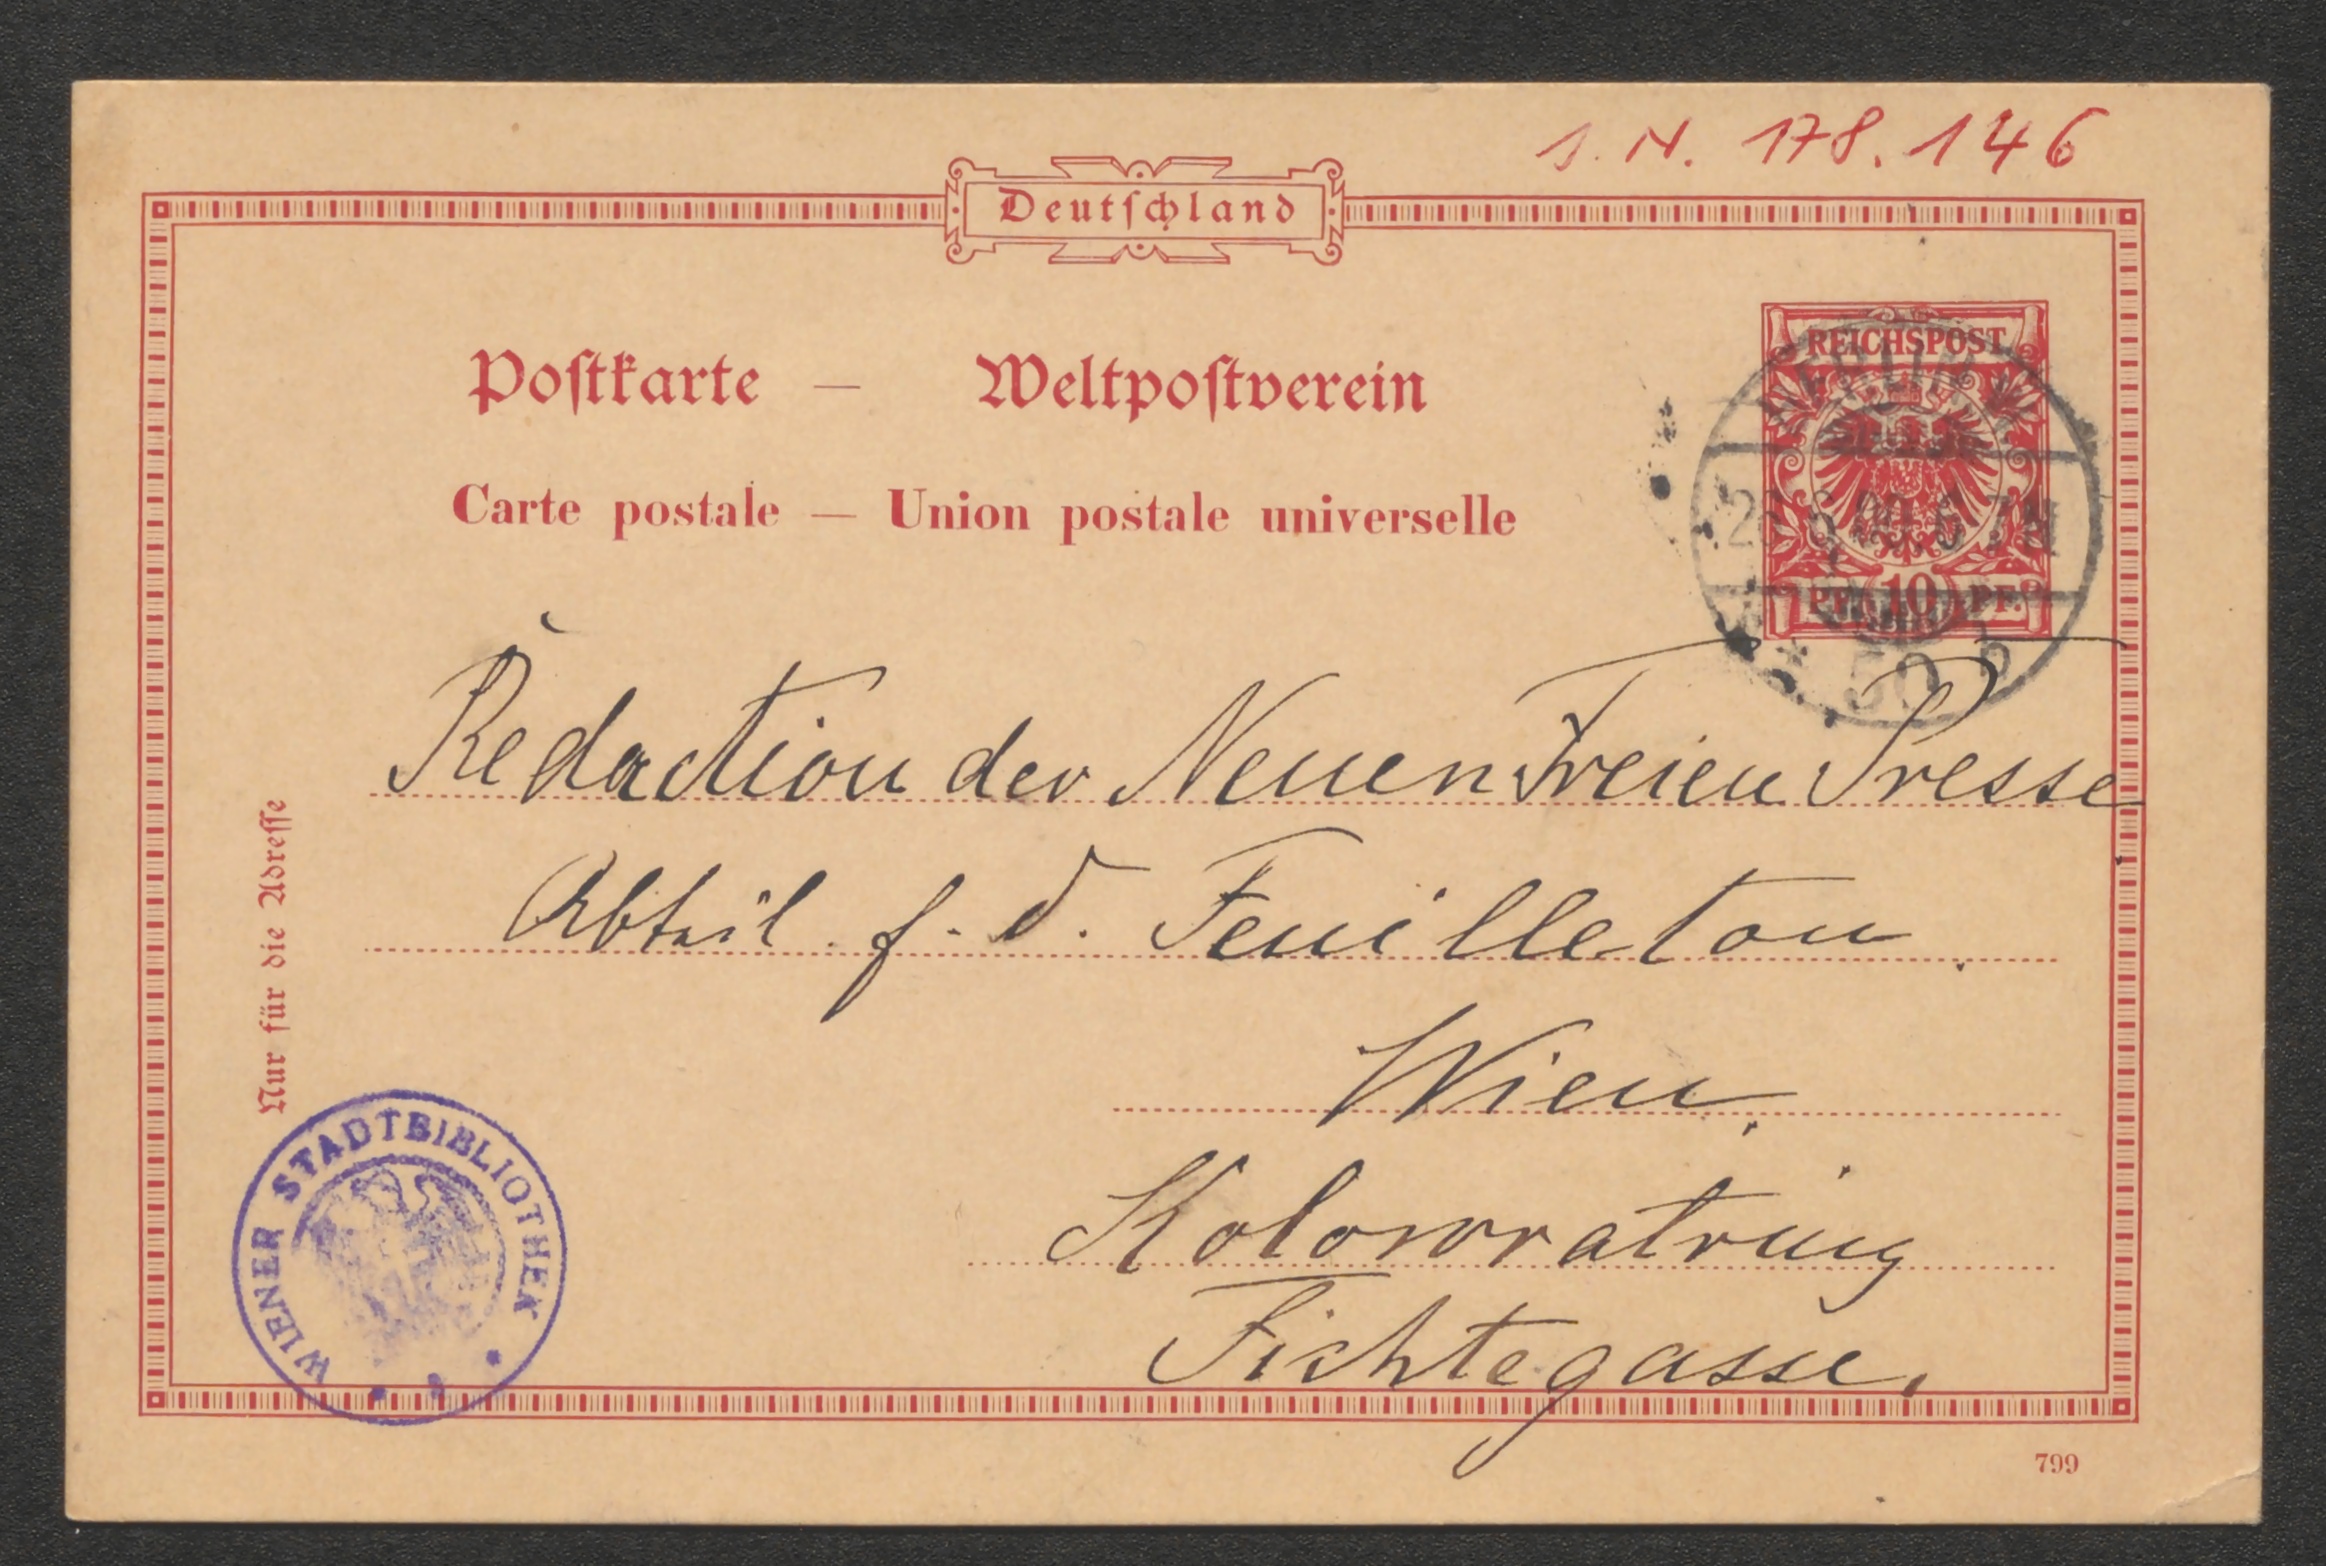 J. N. 178.146
Deutschland
Postkarte — Weltpostverein
Carte postale — Union postale universelle
REICHSPOST
PF. 10 PF.
BERLIN
6-7N
* 50 b
Redaction der Neuen Freien Presse
Abteil. f. d. Feuilleton.
Wien.
Kolowratring
Fichtegasse.
Nur für die Adresse
WIENER STADTBIBLIOTHEK
799